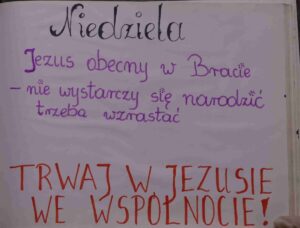 Niedziela
Jezus obecny w Bracie
- nie wystarczy się narodzić
trzeba wzrastać
TRWAJ W JEZUSIE
WE WSPÓLNOCIE!